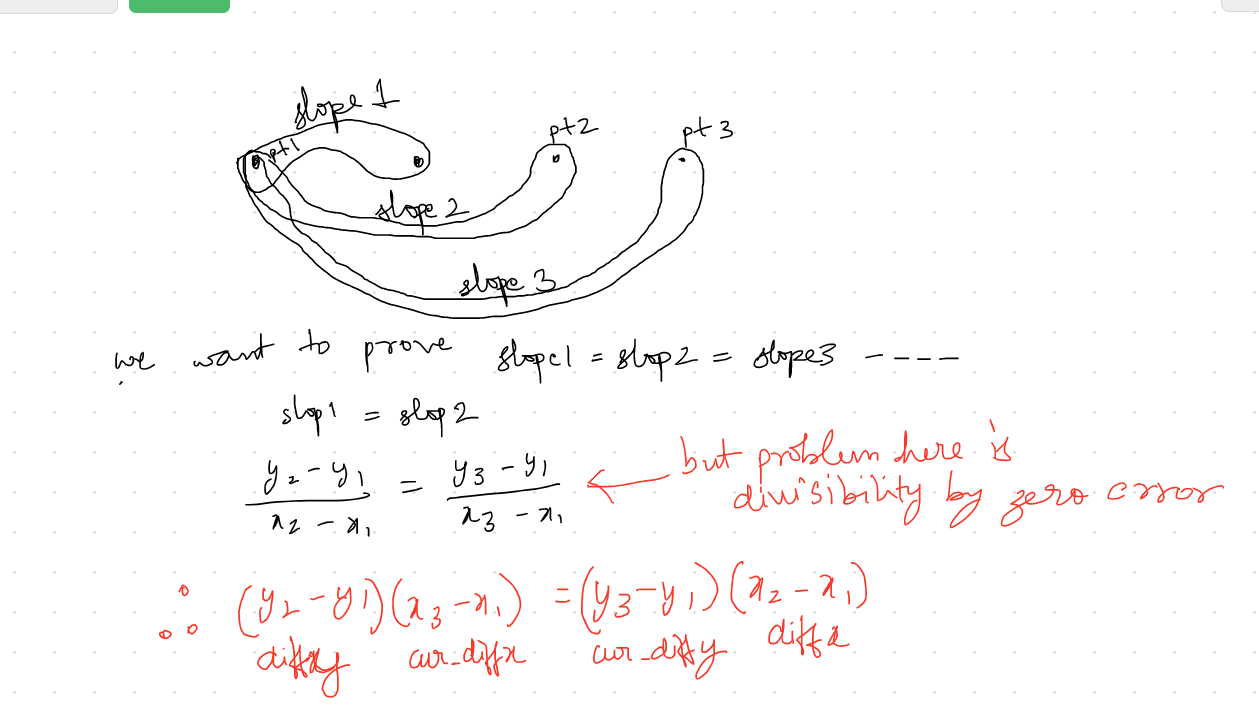 slope 1
pt1
pt2
pt 3
slope 2
slope 3
we want to prove slope1 = slop2 = slope3 -----
slop1 = slop2
y2 - y1 / x2 - x1 = y3 - y1 / x3 - x1
but problem here is
divisibility by zero error
∴ (y2 - y1)(x3 - x1) = (y3 - y1)(x2 - x1)
diffy cur_diffx cur_diffy diffx